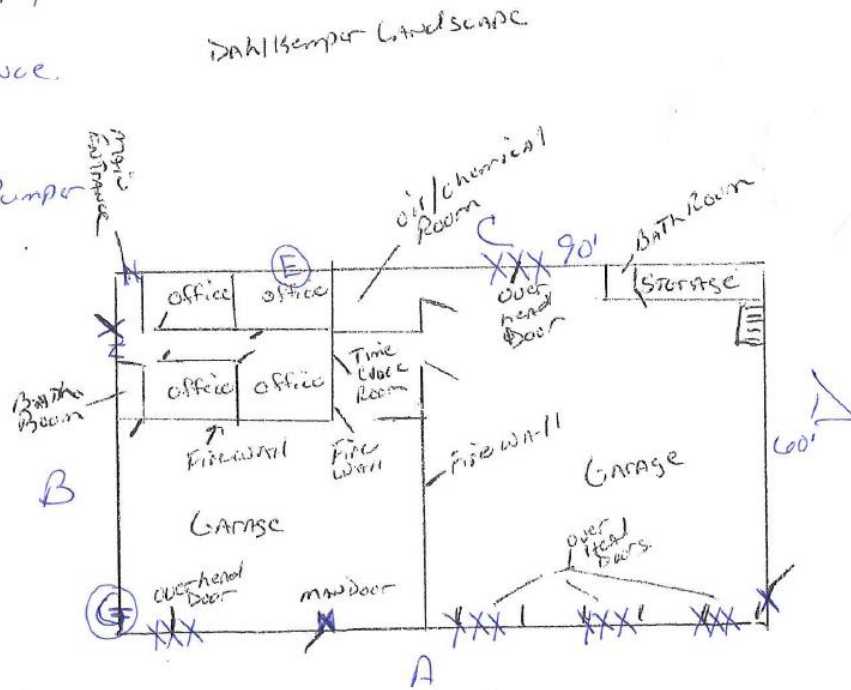 DAhlKemper LANDSCAPE
Pumper
MAIN
ENTRANCE
oil/chemical
Room
C
90'
BATHRoom
E
office
office
over
head
Door
STORAGE
office
office
Time
Clock
Room
Bath
Room
FireWAll
Fire
WAll
FireWAll
60'
B
GARAGE
GARAGE
over
Head
Doors
overhead
Door
MANDOOR
G
XXX
XXX
XXX
XXX
XXX
A